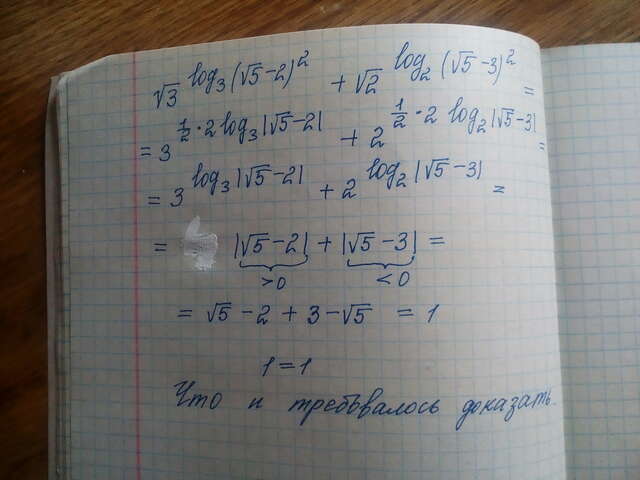 √3^(log₃(√5-2)²) + √2^(log₂(√5-3)²) =
= 3^(1/2·2log₃|√5-2|) + 2^(1/2·2log₂|√5-3|) =
= 3^(log₃|√5-2|) + 2^(log₂|√5-3|) =
= |√5-2| + |√5-3| =
>0 <0
= √5 - 2 + 3 - √5 = 1
1=1
Что и требовалось доказать.